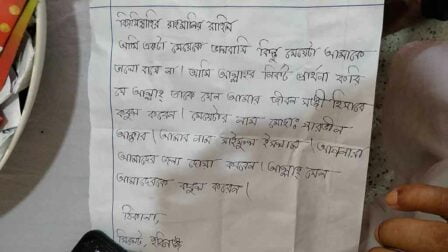 বিসমিল্লাহির রাহমানির রাহিম
আমি একটা মেয়েকে ভালবাসি কিন্তু মেয়েটা আমাকে
ভালো বাসে না। আমি আল্লাহর নিকট প্রার্থনা করি
যে আল্লাহ্ তাকে যেন আমার জীবন সঙ্গী হিসাবে
কবুল করেন। মেয়েটার নাম মোছাঃ শারমীন
আক্তার। আমার নাম সাইফুল ইসলাম। আপনারা
আমাদের জন্য দোয়া করবেন। আল্লাহ্ যেন
আমাদেরকে কবুল করেন।
ঠিকানা,
সিলেট,